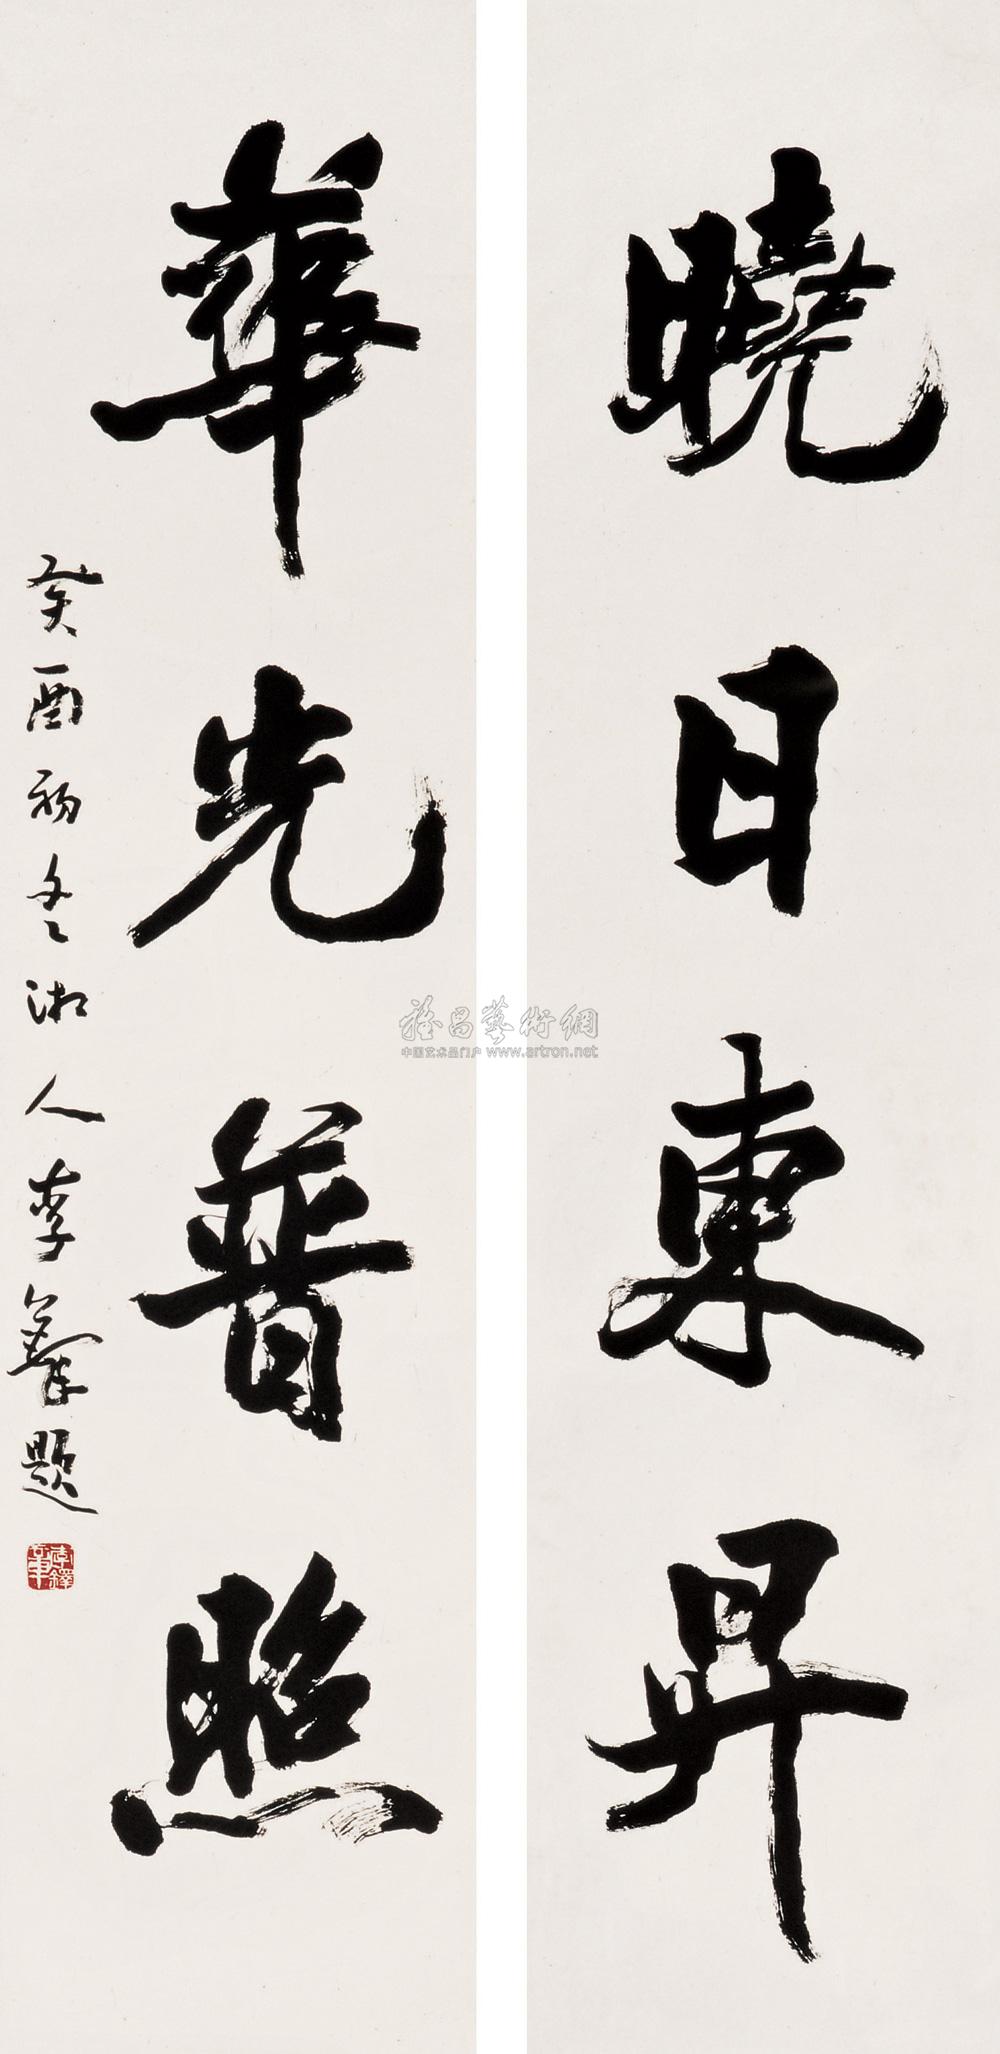 曉日東昇
華光普照
癸酉初冬湘人李鐸題
李鐸
雅昌藝術網
中国艺术品门户 www.artron.net